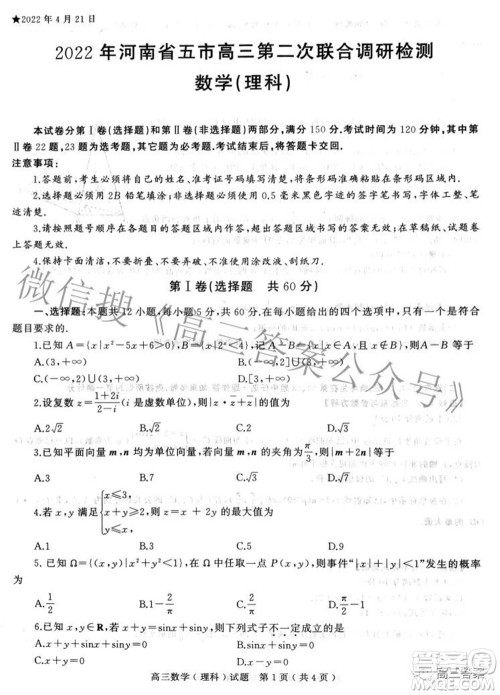 ★2022年4月21日
2022年河南省五市高三第二次联合调研检测
数学(理科)
本试卷分第Ⅰ卷(选择题)和第Ⅱ卷(非选择题)两部分,满分150分.考试时间为120分钟,其中第
Ⅱ卷22题,23题为选考题,其它题为必考题.考试结束后,将答题卡交回.
注意事项:
1.答题前,考生必须将自己的姓名、准考证号码填写清楚,将条形码准确粘贴在条形码区域内.
2.选择题必须使用2B铅笔填涂;非选择题必须使用0.5毫米黑色字迹的签字笔书写,字体工整、笔
迹清楚.
3.请按照题号顺序在各题目的答题区域内作答,超出答题区域书写的答案无效;在草稿纸、试题卷
上答题无效.
4.保持卡面清洁,不要折叠、不要弄破、不准使用涂改液、刮纸刀.
第Ⅰ卷(选择题 共60分)
一、选择题(本题共12小题,每小题5分,共60分,在每小题给出的四个选项中,只有一项是符合
题目要求的.
1.已知A={x|x²-5x+6>0},B={x|2ˣ<4},记A-B={x|x∈A且x∉B},则A-B等于
A.(3,+∞) B.(-∞,2) C.(2,+∞) D.[3,+∞)
2.设复数z=(1+2i)/(2-i)(i是虚数单位),则|z·z̄+z̄|的值为
A.2√2 B.√2 C.1 D.2
3.已知平面向量m,n均为单位向量,若向量m,n的夹角为π/3,则|m+2n|等于
A.3 B.7 C.√3 D.√7
4.若x,y满足{x≤3,
A.1 B.3 C.5 D.9
5.已知Ω={(x,y)|x²+y²<1},在Ω中任取一点P(x,y),则事件“|x|+|y|<1”发生的概率
为
A.1/π B.1-2/π C.1-1/π D.2/π
6.已知x,y∈R,若x+y>0,则下列式子不一定正确的是
A.x+y+sinx+siny>0 B.x+y+sinxsiny>0
C.x+siny>0
高三数学(理科)试题 第1页(共4页)
微信搜《高三答案公众号》
高三答案